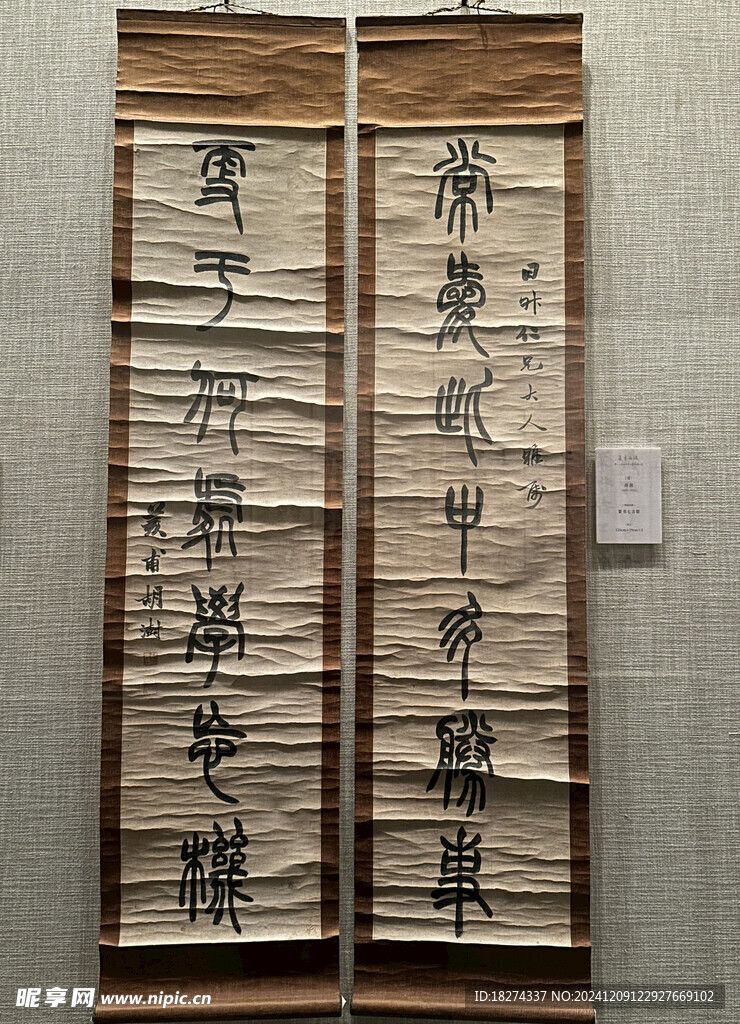 常愛此中多勝事
日 仁兄大人雅屬
更于何處學忘機
荄甫胡澍
昵享网 www.nipic.cn
ID:18274337 NO:20241209122927669102